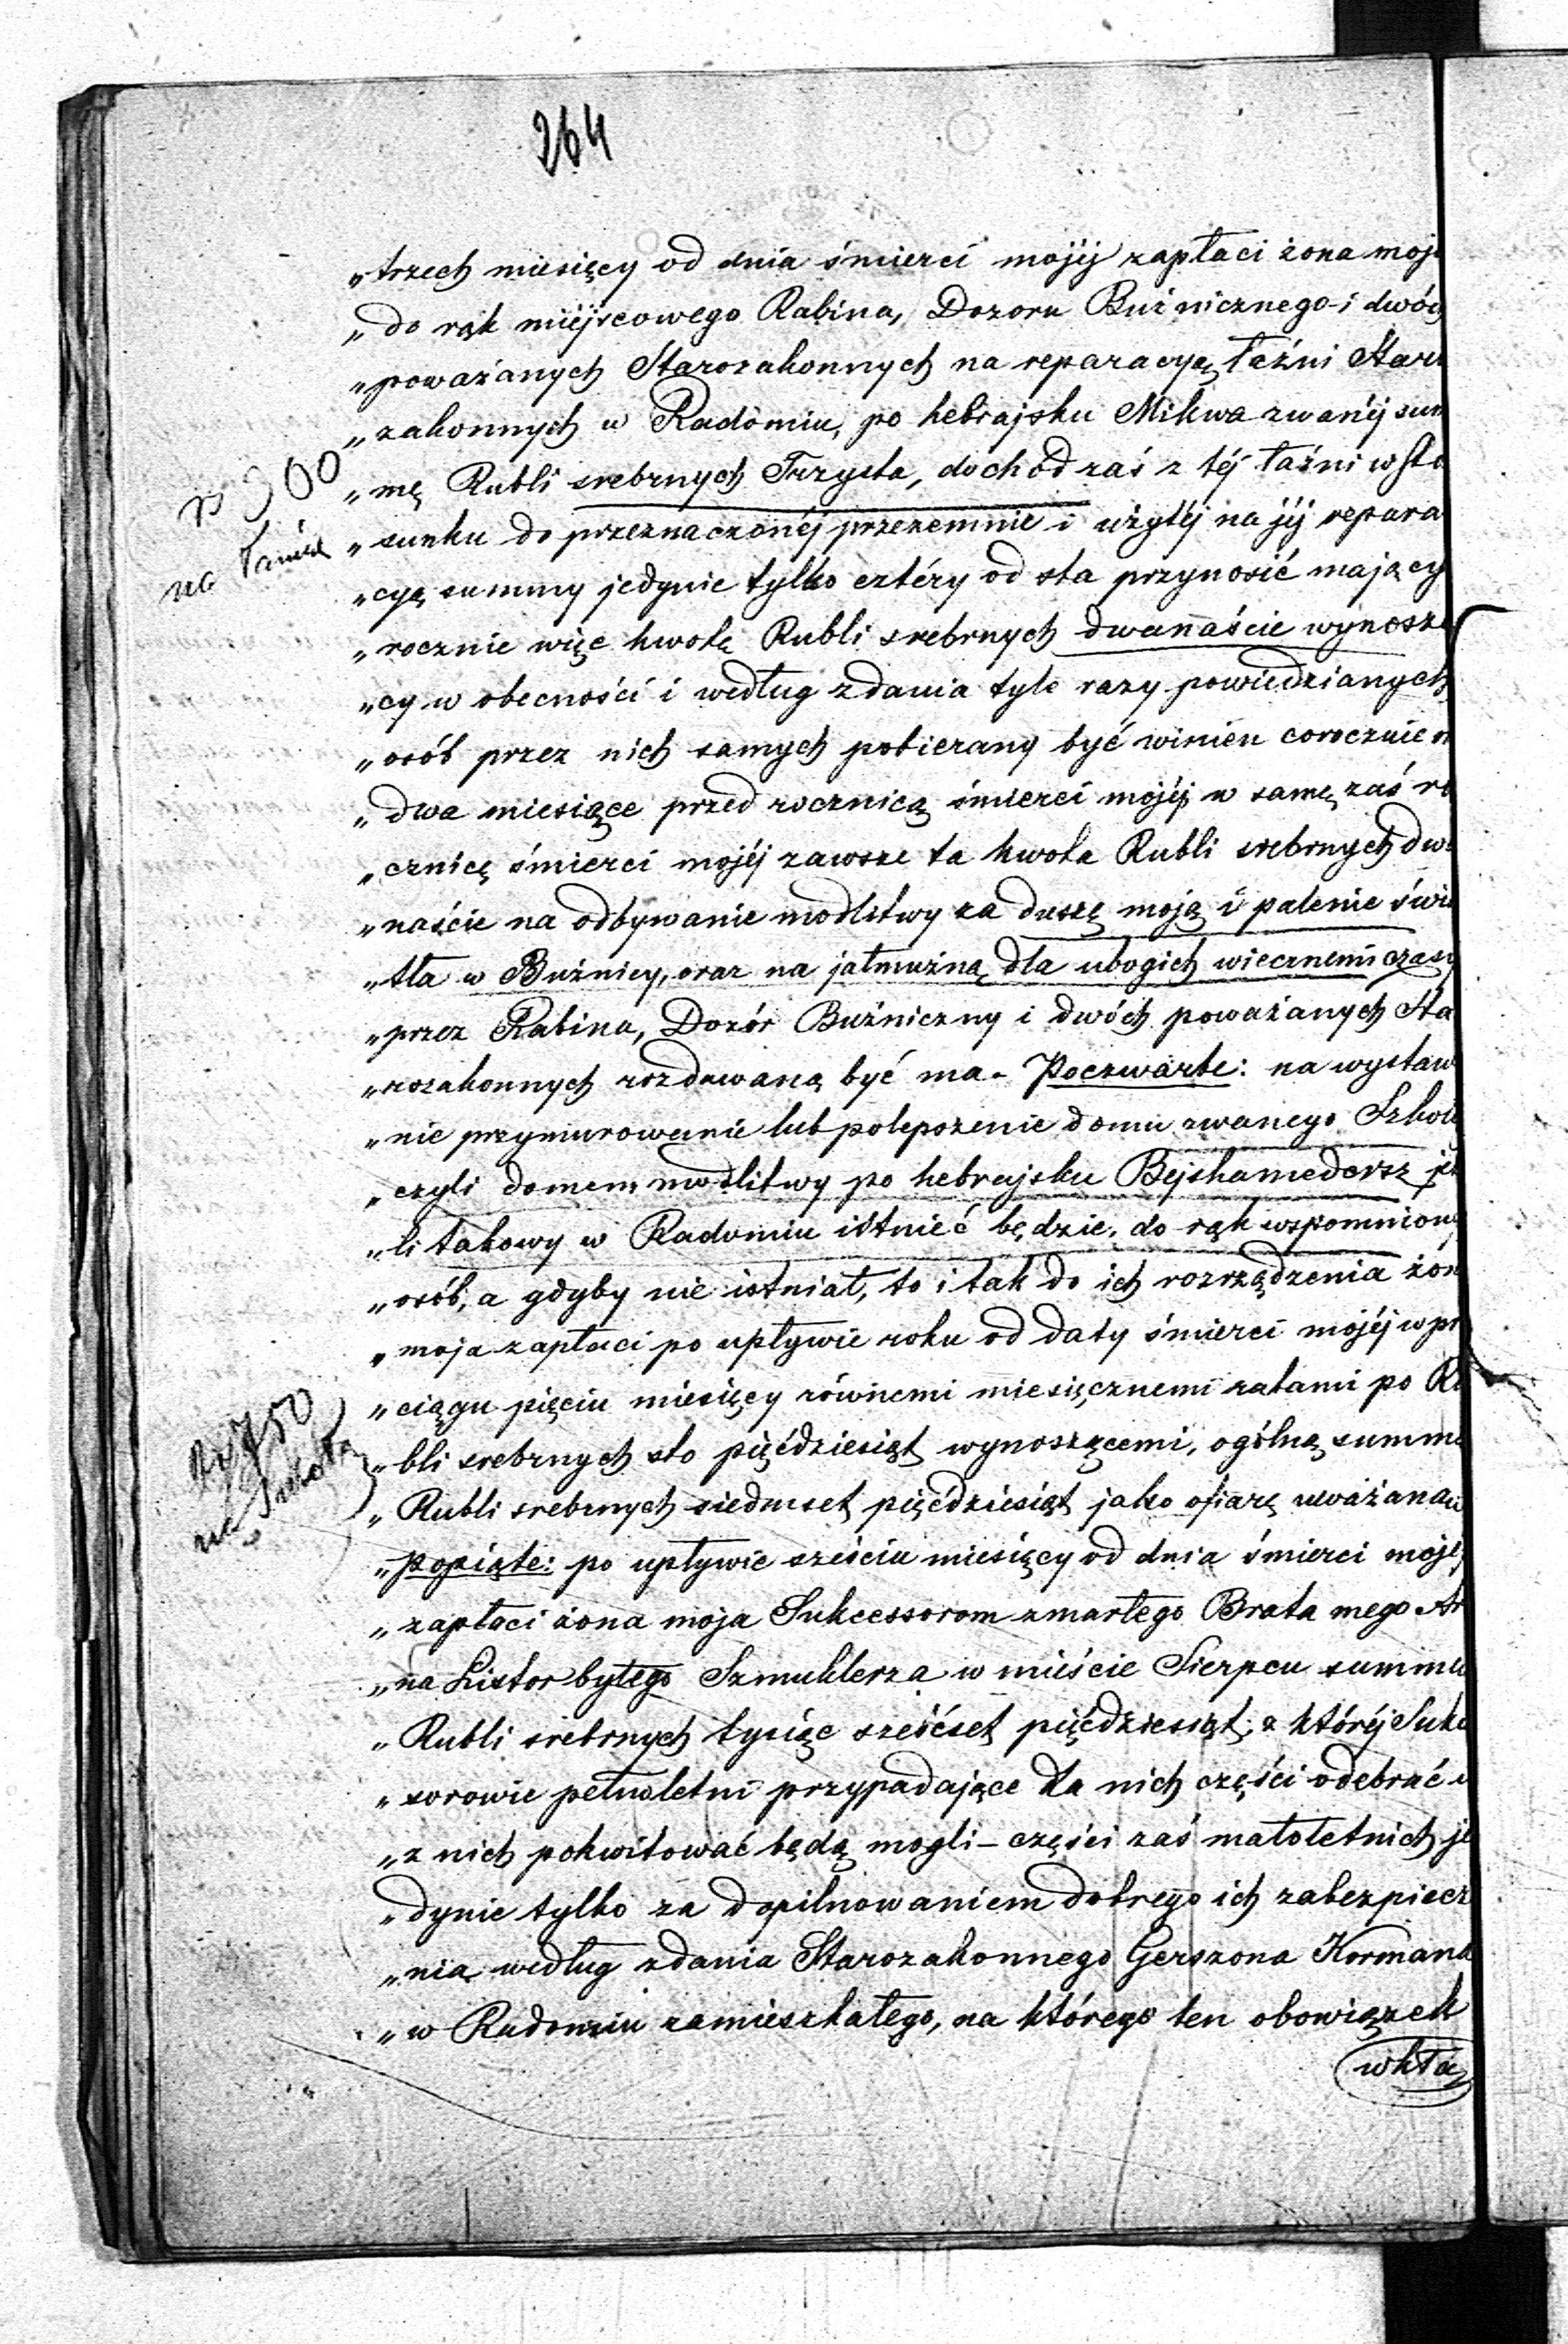 264
„trzech miesięcy od dnia śmierci mojéj zapłaci żona moja
„do rąk miéjscowego Rabina, Dozoru Buźnicznego i dwóch
„poważanych Starozakonnych na reparacyą łaźni Staro
„zakonnych w Radomiu, po hebrajsku Mikwa zwanéj sum
„mę Rubli srebrnych Trzysta, dochód zaś z téj łaźni w sto
„sunku do przeznaczonéj przezemnie i użytéj na jéj repara
„cyą summy jedynie tylko cztéry od sta przynosić mający
„rocznie więc kwotę Rubli srebrnych dwanaście wynoszą
„cy w obecności i według zdania tyle razy powiedzianych
„osób przez nich samych pobierany być winien corocznie na
„dwa miesiące przed rocznicą śmierci mojéj, w samę zaś ro
„cznicę śmierci mojéj zawsze ta kwota Rubli srebrnych dwa
„naście na odbywanie modlitwy za duszę moją i palenie świa
„tła w Buźnicy, oraz na jałmużnę dla ubogich wiecznemi czasy
„przez Rabina, Dozór Buźniczny i dwóch poważanych Sta
„rozakonnych rozdawaną być ma - Poczwarte: na wystaw
„nie przymurowanie lub polepszenie domu zwanego Szkołą
„czyli domem modlitwy po hebrajsku Bejshamedersz jeż
„li takowy w Radomiu istnieć będzie, do rąk wspomniony
„osób, a gdyby nie istniał, to i tak do ich rozrządzenia żona
„moja zapłaci po upływie roku od daty śmierci mojéj w prze
„ciągu pięciu miesięcy równemi miesięcznemi ratami po Ru
„bli srebrnych sto pięćdziesiąt wynoszącemi, ogólną summę
„Rubli srebrnych siedmset pięćdziesiąt jako ofiarę uważaną
„popiąte: po upływie sześciu miesięcy od dnia śmierci mojéj
„zapłaci żona moja Sukcessorom zmarłego Brata mego Aro
„na Listor byłego Szmuklerza w mieście Sierpcu summę
„Rubli srebrnych tysiąc sześćset pięćdziesiąt, z któréj Sukces
„sorowie pełnoletni przypadające dla nich części odebrać i
„z nich pokwitować będą mogli - części zaś małoletnich je
„dynie tylko za dopilnowaniem dobrego ich zabezpiecze
„nia według zdania Starozakonnego Gerszona Kormana
„w Radomiu zamieszkałego, na którego ten obowiązek
wkła
rs 300
na Łaźnię
rs 750
na Szkołę